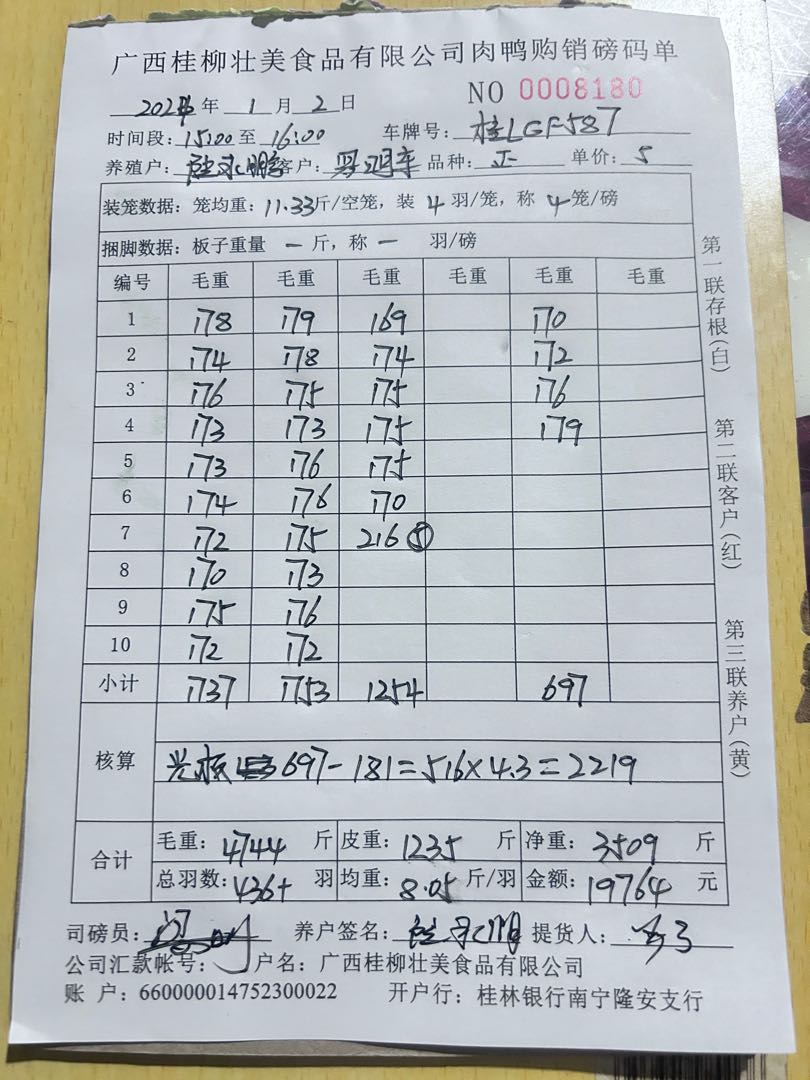 广西桂柳壮美食品有限公司肉鸭购销磅码单
NO 0008180
年 1 月 2 日
时间段: 15:00 至 16:00 车牌号: 桂LGF587
养殖户: 客户: 品种: 正 单价: 5
装笼数据: 笼均重: 11.33斤/空笼, 装 4 羽/笼, 称 4笼/磅
捆脚数据: 板子重量 一 斤, 称 一 羽/磅
编号 毛重 毛重 毛重 毛重 毛重 毛重
1 178 179 169 170
2 174 178 174 172
3 176 175 175 176
4 173 173 175 179
5 173 176 175
6 174 176 170
7 172 175 216 ⑤
8 170 173
9 175 176
10 172 172
小计 1737 1753 1254 697
核算 697-181=516×4.3=2219
合计 毛重: 4744 斤 皮重: 1235 斤 净重: 3509 斤
总羽数: 436+ 羽 均重: 8.05 斤/羽 金额: 19764 元
司磅员: 养户签名: 提货人:
公司汇款帐号: 户名: 广西桂柳壮美食品有限公司
账 户: 660000014752300022 开户行: 桂林银行南宁隆安支行
第一联存根(白)
第二联客户(红)
第三联养户(黄)